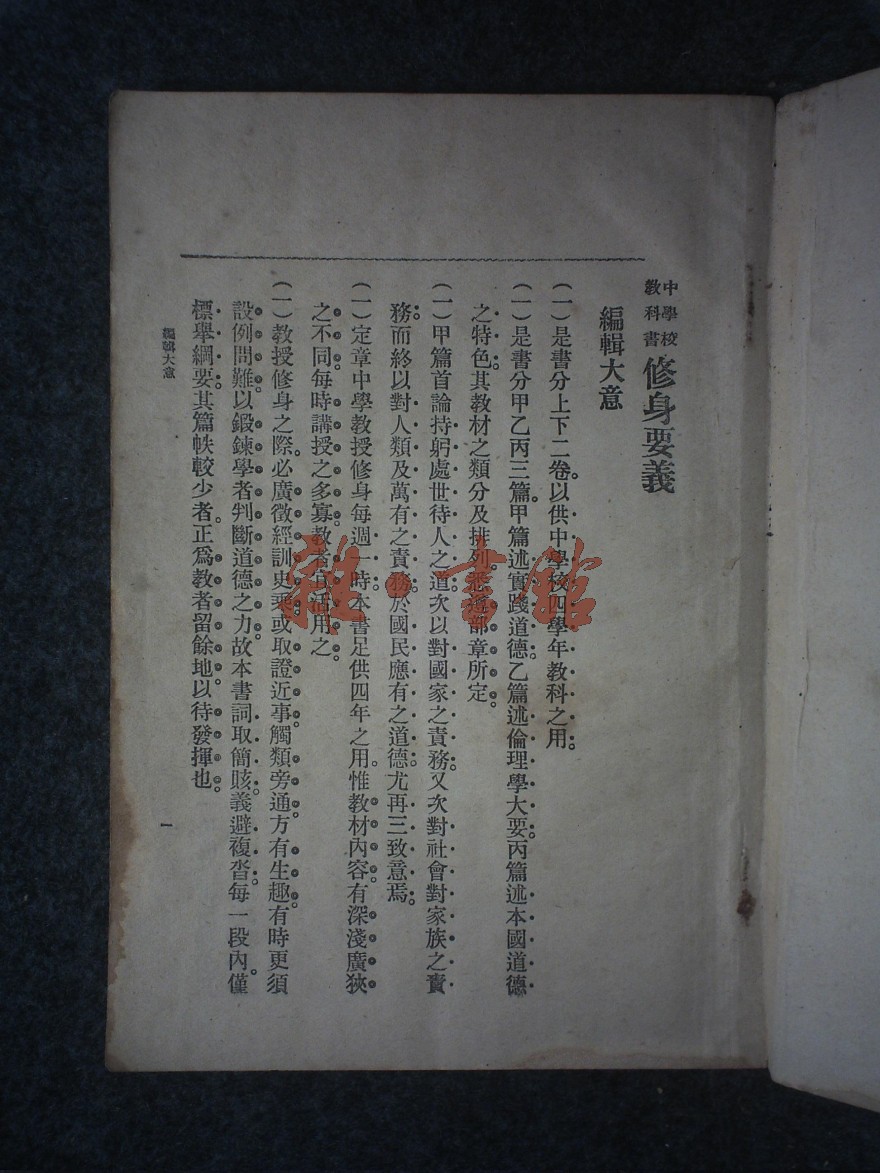 中學校
教科書
修身要義
編輯大意
(一)是書分上下二卷。以供中學校四學年教科之用。
(一)是書分甲乙丙三篇。甲篇述實踐道德。乙篇述倫理學大要。丙篇述本國道德
之特色。其教材之類分及排列。悉遵部章所定。
(一)甲篇首論持躬處世待人之道。次以對國家之責務。又次對社會對家族之責
務。而終以對人類及萬有之責務。於國民應有之道德。尤再三致意焉。
(一)定章中學教授修身每週一時。本書足供四年之用。惟教材內容有深淺廣狹
之不同。每時講授之多寡。教者宜活用之。
(一)教授修身之際。必廣徵經訓史乘。或取證近事。觸類旁通。方有生趣。有時更須
設例問難。以鍛鍊學者判斷道德之力。故本書詞取簡賅。義避複沓。每一段內。僅
標舉綱要。其篇帙較少者。正爲教者留餘地。以待發揮也。
編輯大意
一
雜·書館